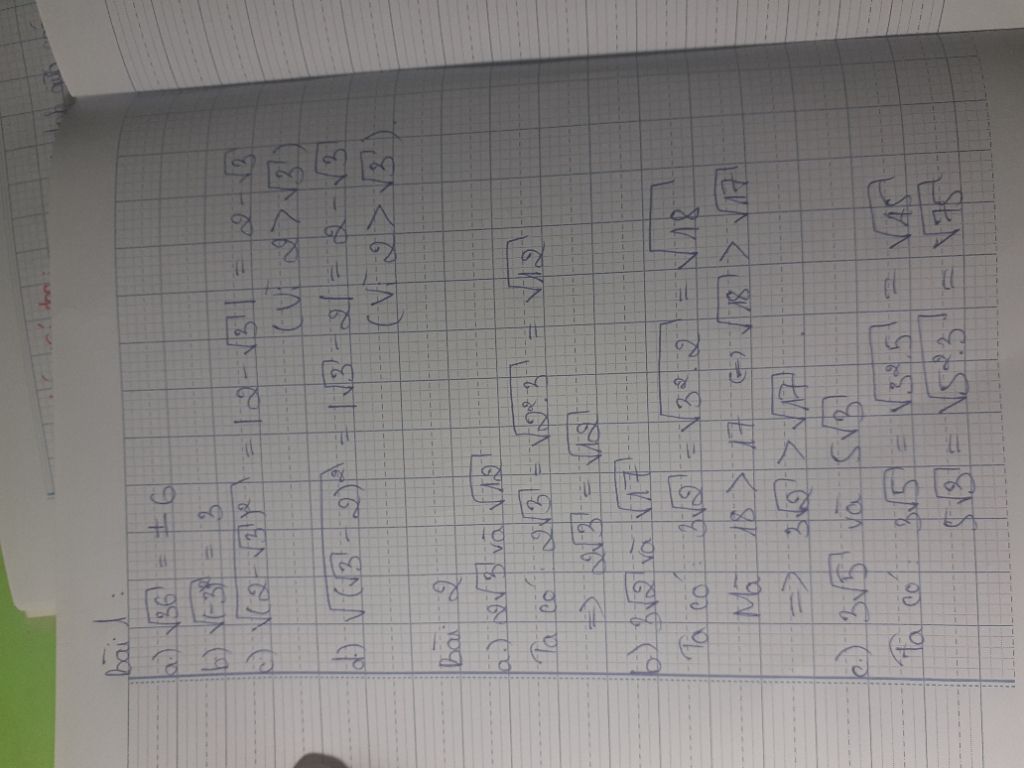 Bài 1:
a) √36 = ± 6
b) √(-3)² = 3
c) √(2 - √3)² = |2 - √3| = 2 - √3
(Vì 2 > √3)
d) √(√3 - 2)² = |√3 - 2| = 2 - √3
(Vì 2 > √3).
Bài 2
a) 2√3 và √12
Ta có: 2√3 = √2².3 = √12
=> 2√3 = √12
b) 3√2 và √17
Ta có: 3√2 = √3².2 = √18
Mà 18 > 17 <=> √18 > √17
=> 3√2 > √17
c) 3√5 và 5√3
Ta có: 3√5 = √3².5 = √45
5√3 = √5².3 = √75